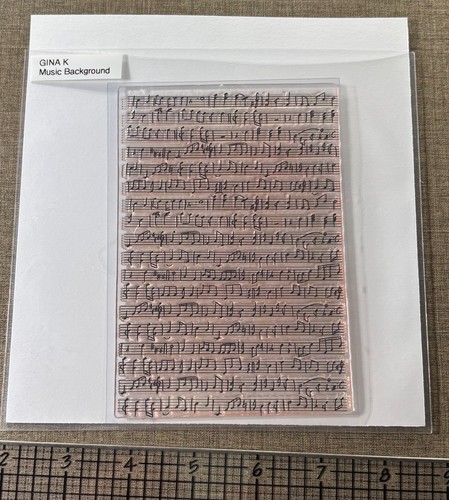 GINA K
Music Background
2 3 4 5 6 7 8